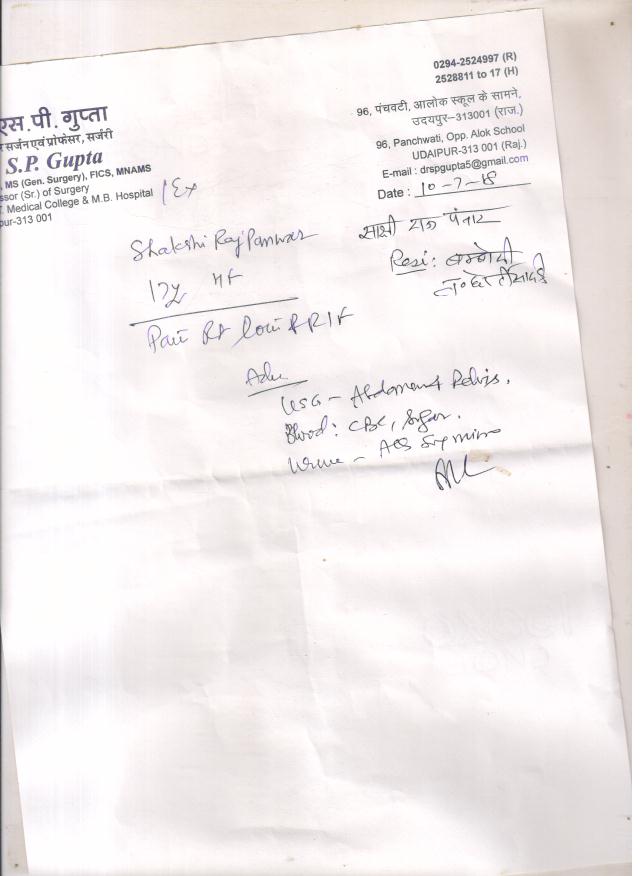 0294-2524997 (R)
2528811 to 17 (H)
एस.पी. गुप्ता
सर्जन एवं प्रोफेसर, सर्जरी
S.P. Gupta
MS (Gen. Surgery), FICS, MNAMS
ssor (Sr.) of Surgery
Medical College & M.B. Hospital
pur-313 001
96, पंचवटी, आलोक स्कूल के सामने,
उदयपुर-313001 (राज.)
96, Panchwati, Opp. Alok School
UDAIPUR-313 001 (Raj.)
E-mail : drspgupta5@gmail.com
Date : 10-7-18
Shakshi Raj Panwar
साक्षी राज पंवार
Resi:
17y
Pain Rt loin & RIF
Adv
USG - Abdomen & Pelvis.
Blood: CBC, Sugar.
Urine -